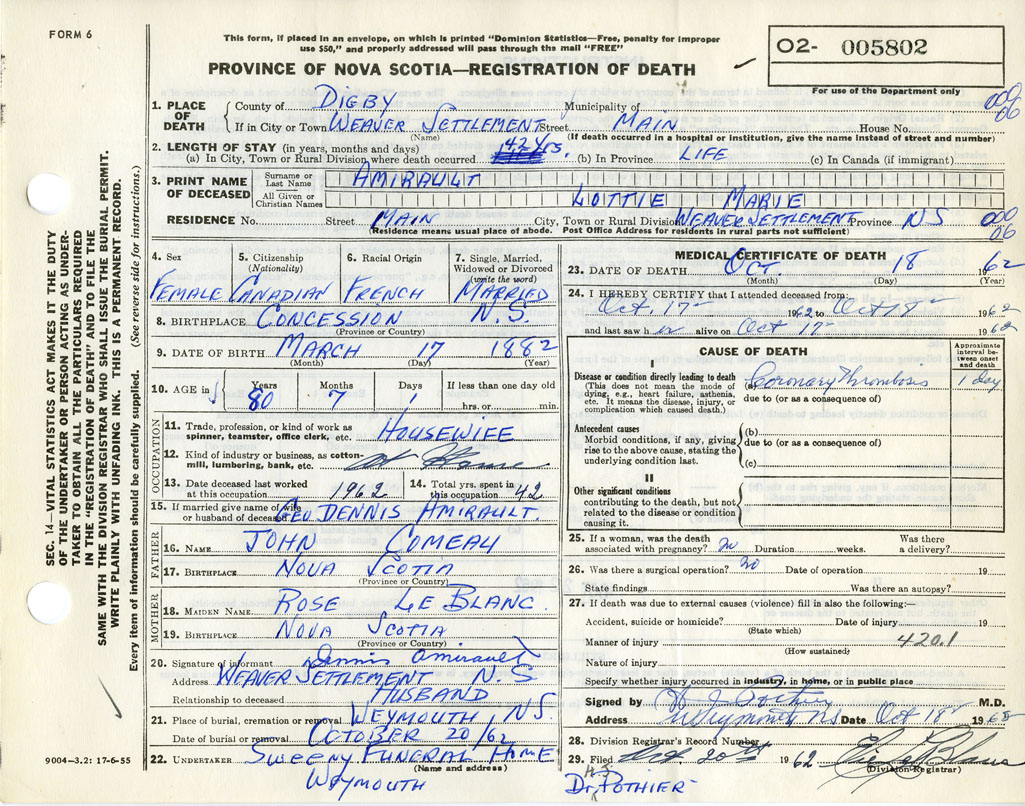 FORM 6
This form, if placed in an envelope, on which is printed "Dominion Statistics—Free, penalty for improper
use $50," and properly addressed will pass through the mail "FREE"
O2- 005802
PROVINCE OF NOVA SCOTIA—REGISTRATION OF DEATH
For use of the Department only
1. PLACE OF DEATH
County of DIGBY Municipality of
000
06
If in City or Town WEAVER SETTLEMENT Street MAIN House No.
(Name) (If death occurred in a hospital or institution, give the name instead of street and number)
2. LENGTH OF STAY (in years, months and days)
(a) In City, Town or Rural Division where death occurred 42 YRS. (b) In Province LIFE (c) In Canada (if immigrant)
3. PRINT NAME OF DECEASED
Surname or Last Name AMIRAULT
All Given or Christian Names LOTTIE MARIE
RESIDENCE No. Street MAIN City, Town or Rural Division WEAVER SETTLEMENT Province NS
000
06
(Residence means usual place of abode. Post Office Address for residents in rural parts not sufficient)
4. Sex FEMALE
5. Citizenship (Nationality) CANADIAN
6. Racial Origin FRENCH
7. Single, Married, Widowed or Divorced (write the word) MARRIED
8. BIRTHPLACE CONCESSION N.S.
(Province or Country)
9. DATE OF BIRTH MARCH 17 1882
(Month) (Day) (Year)
10. AGE in Years 80 Months 7 Days 1 If less than one day old
hrs. or min.
OCCUPATION
11. Trade, profession, or kind of work as spinner, teamster, office clerk, etc. HOUSEWIFE
12. Kind of industry or business, as cotton-mill, lumbering, bank, etc. at Home
13. Date deceased last worked at this occupation 1962
14. Total yrs. spent in this occupation 42
15. If married give name of wife or husband of deceased GEO DENNIS AMIRAULT.
FATHER
16. NAME JOHN COMEAU
17. BIRTHPLACE NOVA SCOTIA
(Province or Country)
MOTHER
18. MAIDEN NAME ROSE LE BLANC
19. BIRTHPLACE NOVA SCOTIA
(Province or Country)
20. Signature of informant Dennis Amirault
Address WEAVER SETTLEMENT N.S
Relationship to deceased HUSBAND
21. Place of burial, cremation or removal WEYMOUTH, NS.
Date of burial or removal OCTOBER 20/62
22. UNDERTAKER SWEENY FUNERAL HOME
(Name and address)
WEYMOUTH
MEDICAL CERTIFICATE OF DEATH
23. DATE OF DEATH OCT. 18 1962
(Month) (Day) (Year)
24. I HEREBY CERTIFY that I attended deceased from:
Oct. 17 1962 to Oct 18 1962
and last saw alive on Oct 17 1962
CAUSE OF DEATH
Approximate interval between onset and death
I
Disease or condition directly leading to death
(This does not mean the mode of dying, e.g., heart failure, asthenia, etc. It means the disease, injury, or complication which caused death.)
(a) Coronary Thrombosis 1 day
due to (or as a consequence of)
Antecedent causes
Morbid conditions, if any, giving rise to the above cause, stating the underlying condition last.
(b)
due to (or as a consequence of)
(c)
II
Other significant conditions
contributing to the death, but not related to the disease or condition causing it.
25. If a woman, was the death associated with pregnancy? no Duration weeks. Was there a delivery?
26. Was there a surgical operation? no Date of operation 19
State findings Was there an autopsy?
27. If death was due to external causes (violence) fill in also the following:—
Accident, suicide or homicide? Date of injury 19
(State which)
Manner of injury 420.1
(How sustained)
Nature of injury
Specify whether injury occurred in industry, in home, or in public place
Signed by M.D.
Address Weymouth NS Date Oct 18 1962
28. Division Registrar's Record Number
29. Filed Oct. 20th 1962
(Division Registrar)
Dr. POTHIER
SEC. 14—VITAL STATISTICS ACT MAKES IT THE DUTY
OF THE UNDERTAKER OR PERSON ACTING AS UNDER-
TAKER TO OBTAIN ALL THE PARTICULARS REQUIRED
IN THE "REGISTRATION OF DEATH" AND TO FILE THE
SAME WITH THE DIVISION REGISTRAR WHO SHALL ISSUE THE BURIAL PERMIT.
WRITE PLAINLY WITH UNFADING INK. THIS IS A PERMANENT RECORD.
Every item of information should be carefully supplied. (See reverse side for instructions.)
9004—3.2: 17-6-55